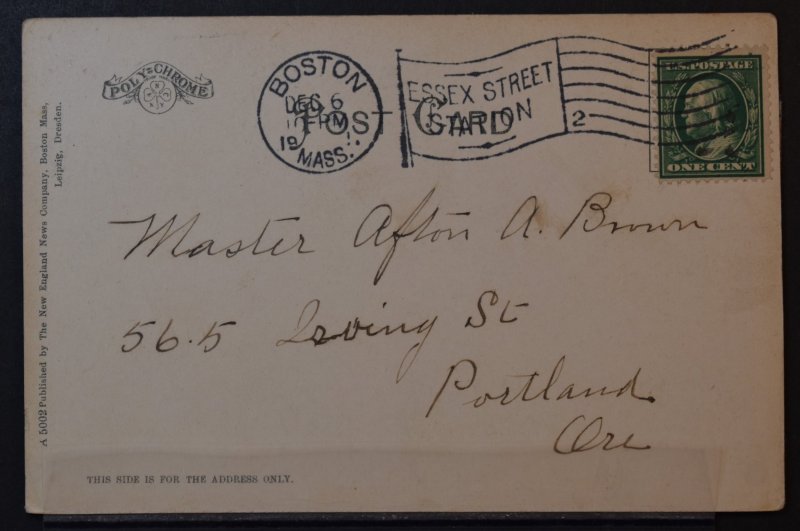 POLY-CHROME
BOSTON
DEC 6
PM
19
MASS.
ESSEX STREET
STATION
2
U.S. POSTAGE
ONE CENT
POST CARD
Master Afton A. Brown
565 Irving St
Portland
Ore
A 5002 Published by The New England News Company, Boston Mass,
Leipzig, Dresden.
THIS SIDE IS FOR THE ADDRESS ONLY.